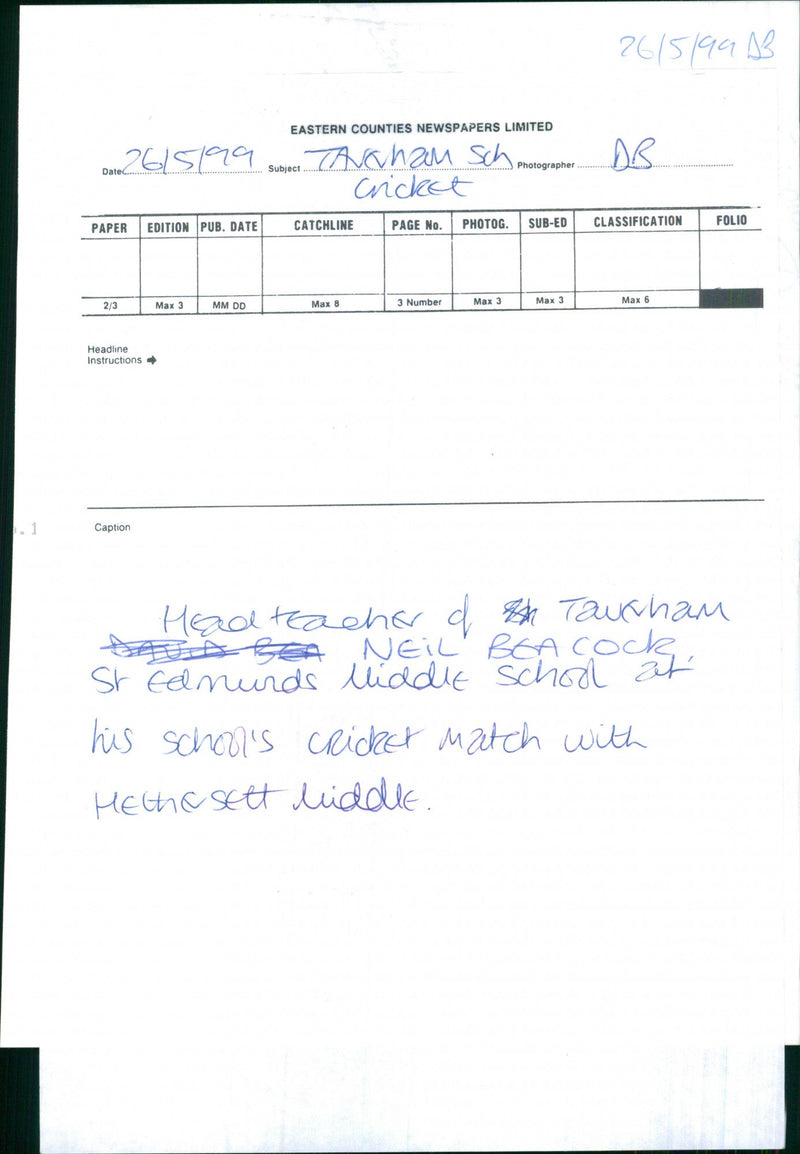 26/5/99 DB
EASTERN COUNTIES NEWSPAPERS LIMITED
Date 26/5/99 Subject TAVERHAM Sch Photographer DB
Cricket
PAPER EDITION PUB. DATE CATCHLINE PAGE No. PHOTOG. SUB-ED CLASSIFICATION FOLIO
2/3 Max 3 MM DD Max 8 3 Number Max 3 Max 3 Max 6
Headline
Instructions
.1
Caption
Headteacher of Taverham
NEIL BEACOCK,
St Edmunds Middle School at
his school's cricket match with
Hethersett Middle.